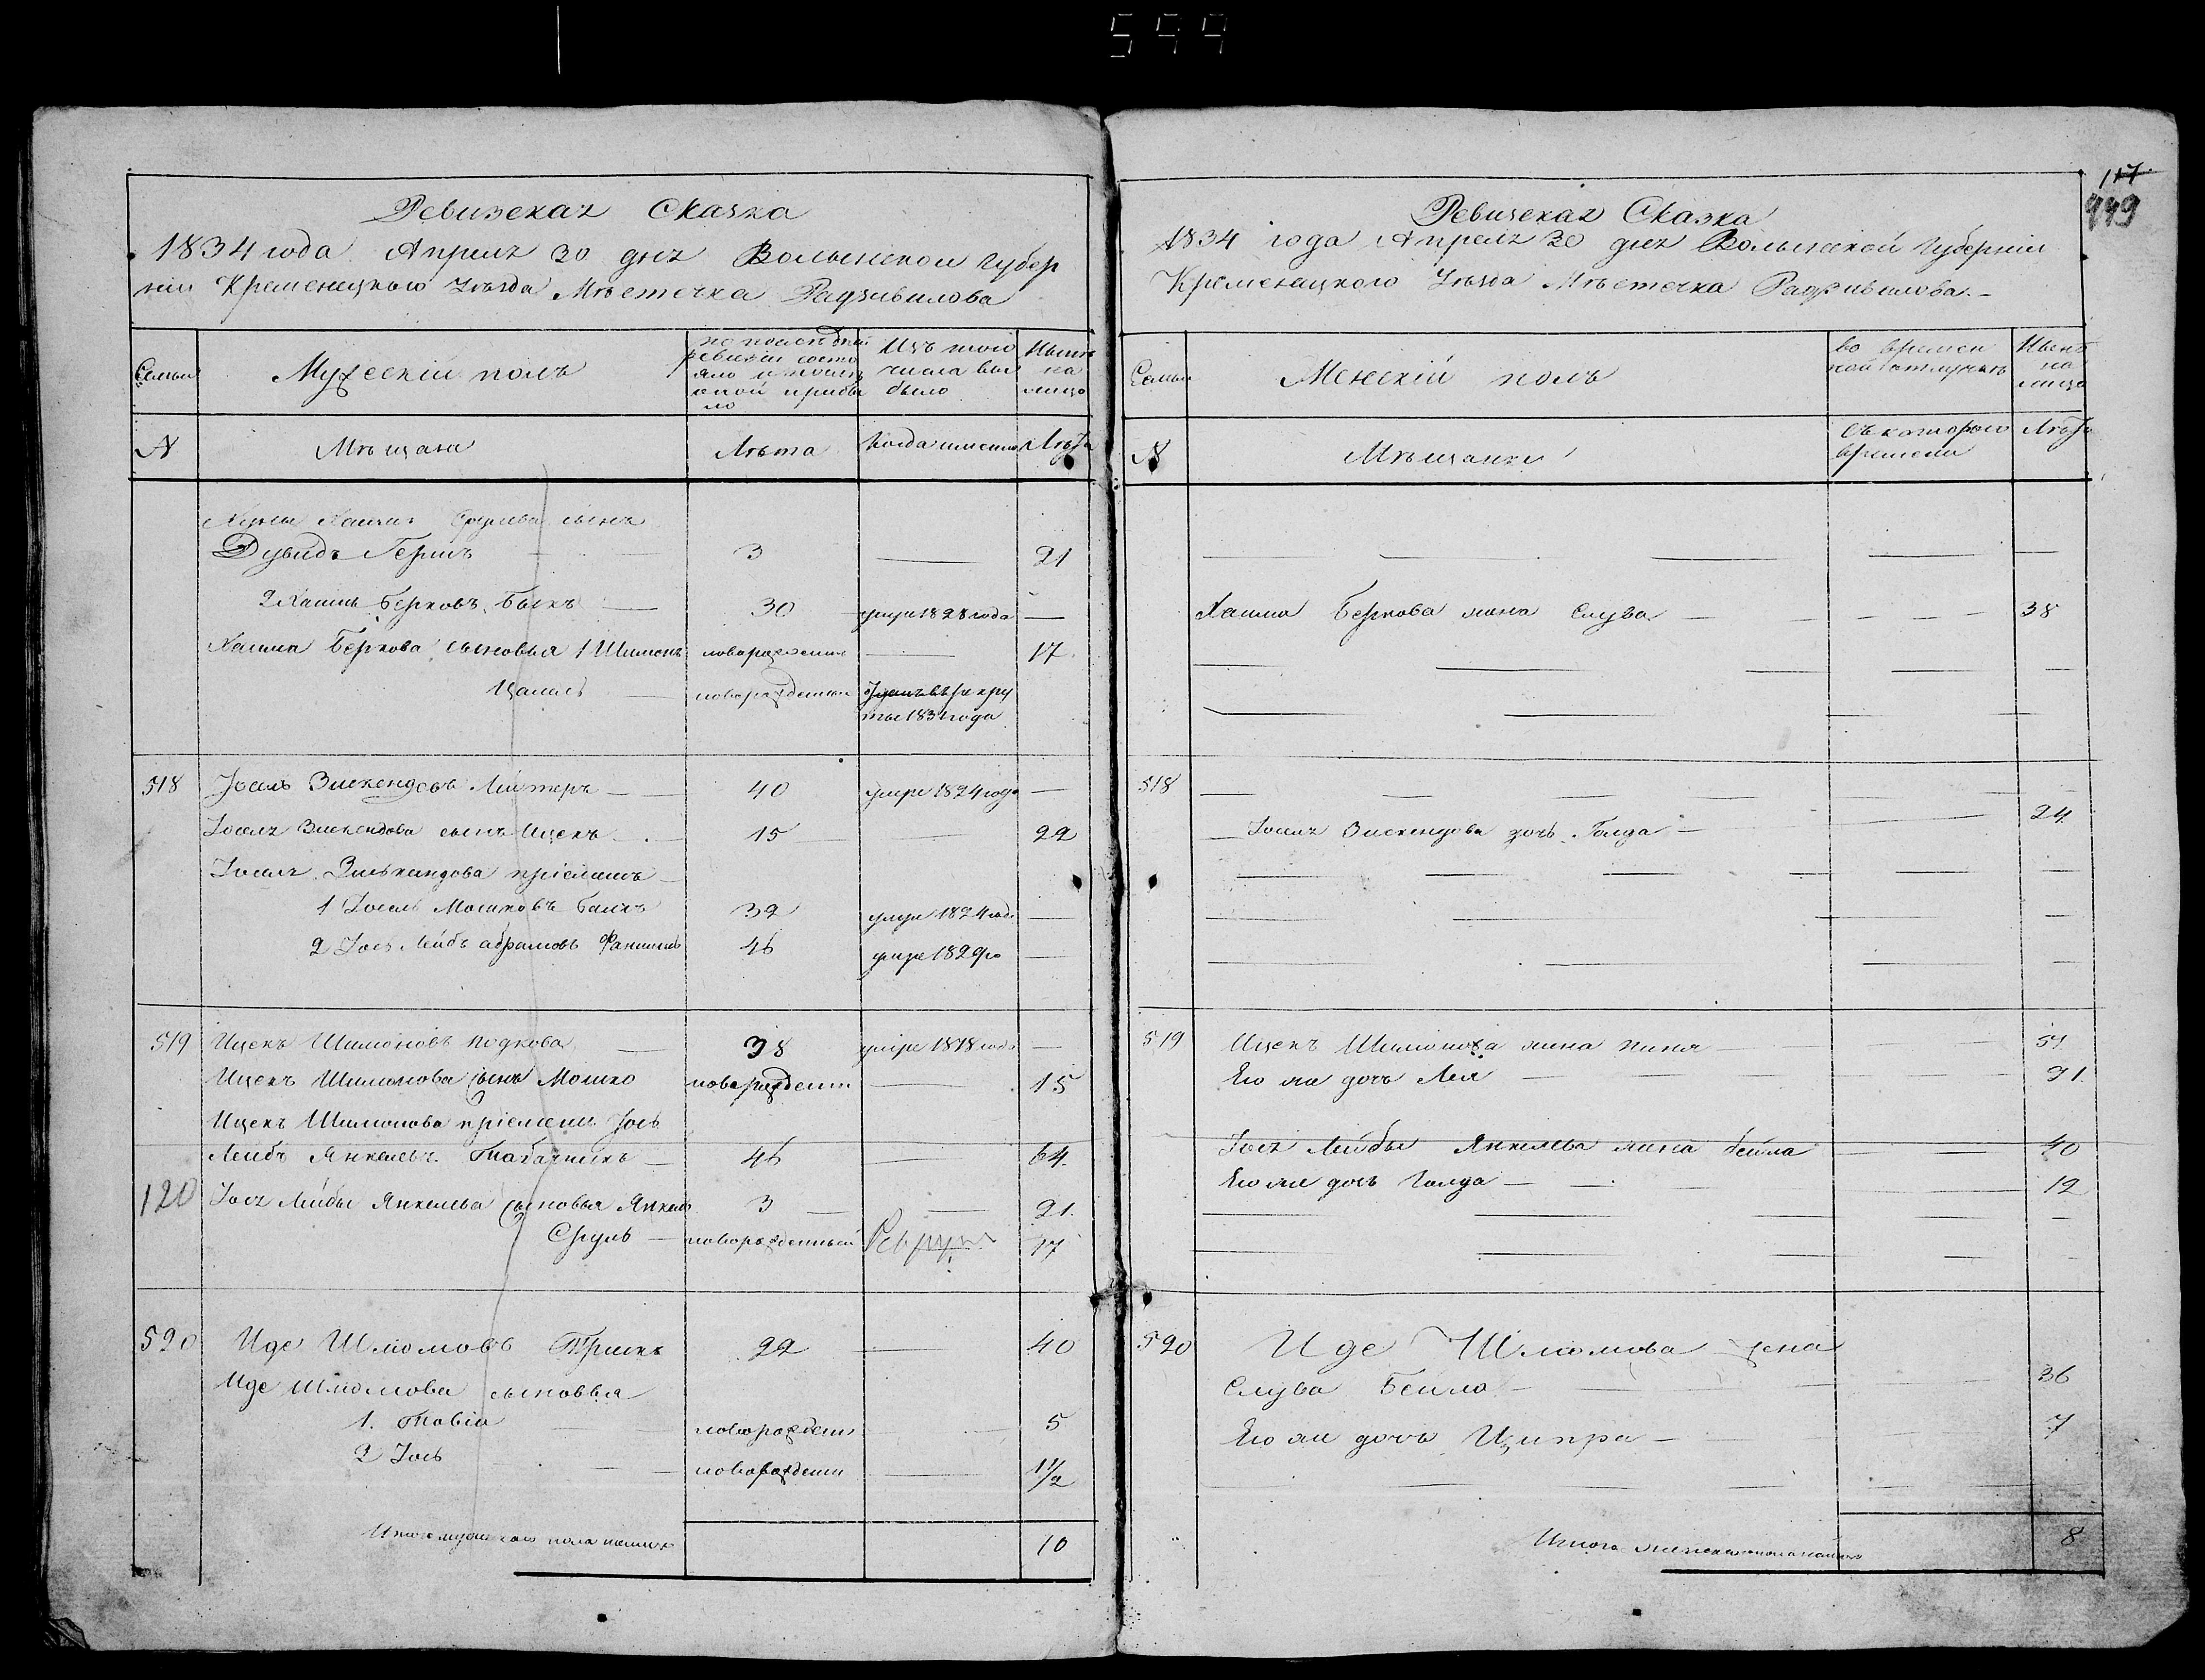 599
117
449
Ревизская Сказка
1834 года Апреля 30 дня Волынской Губер
нiи Кременецкого Уѣзда Мѣстечка Радзивилова
Семьи
Мужескiй полъ
по последней
ревизiи состо
яло и после
оной прибы
ло
Изъ того
числа вы
было
Нынѣ
на
лицо
№
Мѣщане
Лѣта
Когда именно
Лѣта
Хаима Срулева сынъ
Дувидъ Гершъ 3 21
2 Хаимъ Берковъ Быкъ 30 умре 1828 года
Хаима Беркова сыновья 1 Шимонъ новорожденны 17
новорожденны рекру
ты 1831 года
518 Iосель Зискендовъ 40 умре 1824 года
Iоселя Зискендова сынъ Ицекъ 15 22
Iоселя Зиськендова прiемышъ
1 Iосель Мошковъ 32 умре 1824 год
2 Iось Лейбъ Абрамовъ 46 умре 1829 го
519 Ицекъ Шимоновъ Подкова 38 умре 1818 года
Ицекъ Шимонова сынъ Мошко новорожденн 15
Ицекъ Шимонова прiемыш Iось
Лейбъ Янкелевъ Табачникъ 46 64
120 Iося Лейбы Янкелева сыновья Янкель 3 21
Сруль новорожденный Рекрут 17
520 Иде Шлиомовъ 22 40
Иде Шлиомова сыновья
1. Товiя новорожденн 5
2 Iось новорожденн 1 1/2
Итого мужескаго пола налицо 10
Ревизская Сказка
1834 года Апреля 30 дня Волынской Губернiи
Кременецкого Уѣзда Мѣстечка Радзивилова
Семьи
Женскiй полъ
во времен
ной отлучкѣ
Нынѣ
на
лицо
№
Мѣщанки
Съ которого
времени
Лѣта
Хаима Беркова жена Слува 38
518
Iоселя Зискендова дочь Голда 24
519 Ицекъ Шимонова жена
Его же дочь Лея
Iося Лейбы Янкелева жена Бейла 40
Его же дочь Голда 12
520 Иде Шлиомова жена
Слува Бейла 36
Его же дочь Ципра 7
Итого женскаго пола налицо 8